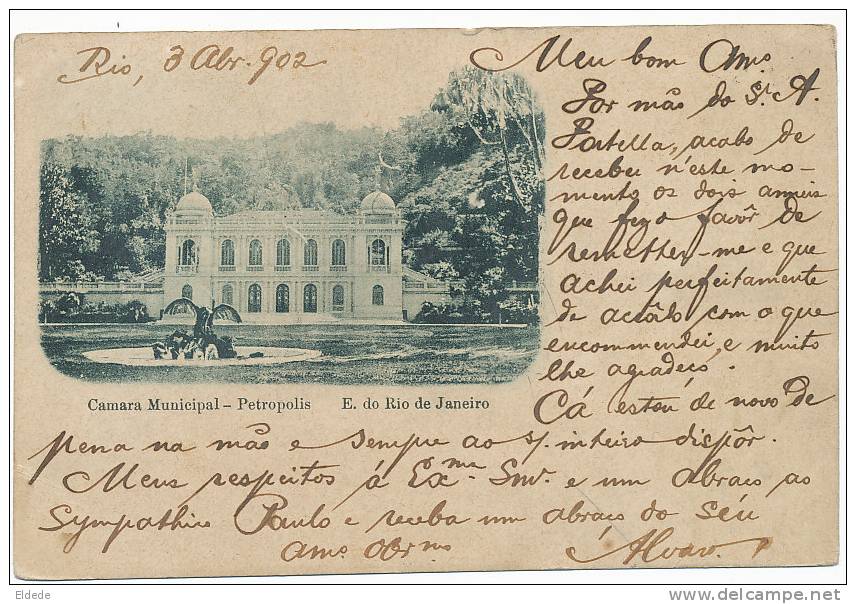 Rio, 3 Abr. 902
Meu bom Amº
Por mão do Sr. A.
Portella, acabo de
receber n'este mo-
mento os dois anneis
que fez o favôr de
remetter-me e que
achei perfeitamente
de acôrdo com o que
encommendei, e muito
lhe agradeço.
Camara Municipal – Petropolis E. do Rio de Janeiro
Cá estou de novo de
pena na mão e sempre ao s/ inteiro dispôr.
Meus respeitos á Exma. Snra. e um abraço ao
Sympathico Paulo e receba um abraço do Seu
Amº Obrmo
Alvaro
Eldede
http://www.delcampe.net